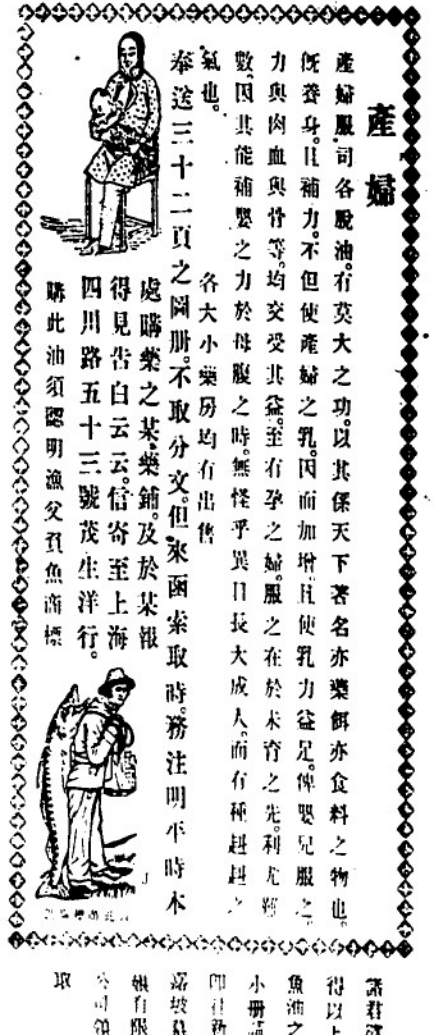 產婦
產婦服司各脫油。有莫大之功。以其係天下著名亦藥餌亦食料之物也。
既養身。且補力。不但使產婦之乳。因而加增。且使乳力益足。俾嬰兒服之。
力與肉血與骨等。均交受其益。至有孕之婦。服之在於未育之先。利尤難
數。因其能補嬰之力於母腹之時。無怪乎異日長大成人。而有種赳赳之
氣也。
各大小藥房均有出售
奉送三十二頁之圖册。不取分文。但來函索取時。務注明平時本
處購藥之某藥鋪。及於某報
得見告白云云。信寄至上海
四川路五十三號茂生洋行。
購此油須認明漁父負魚商標
諸君
得以上
魚油之
小册
即
有限
公司
取